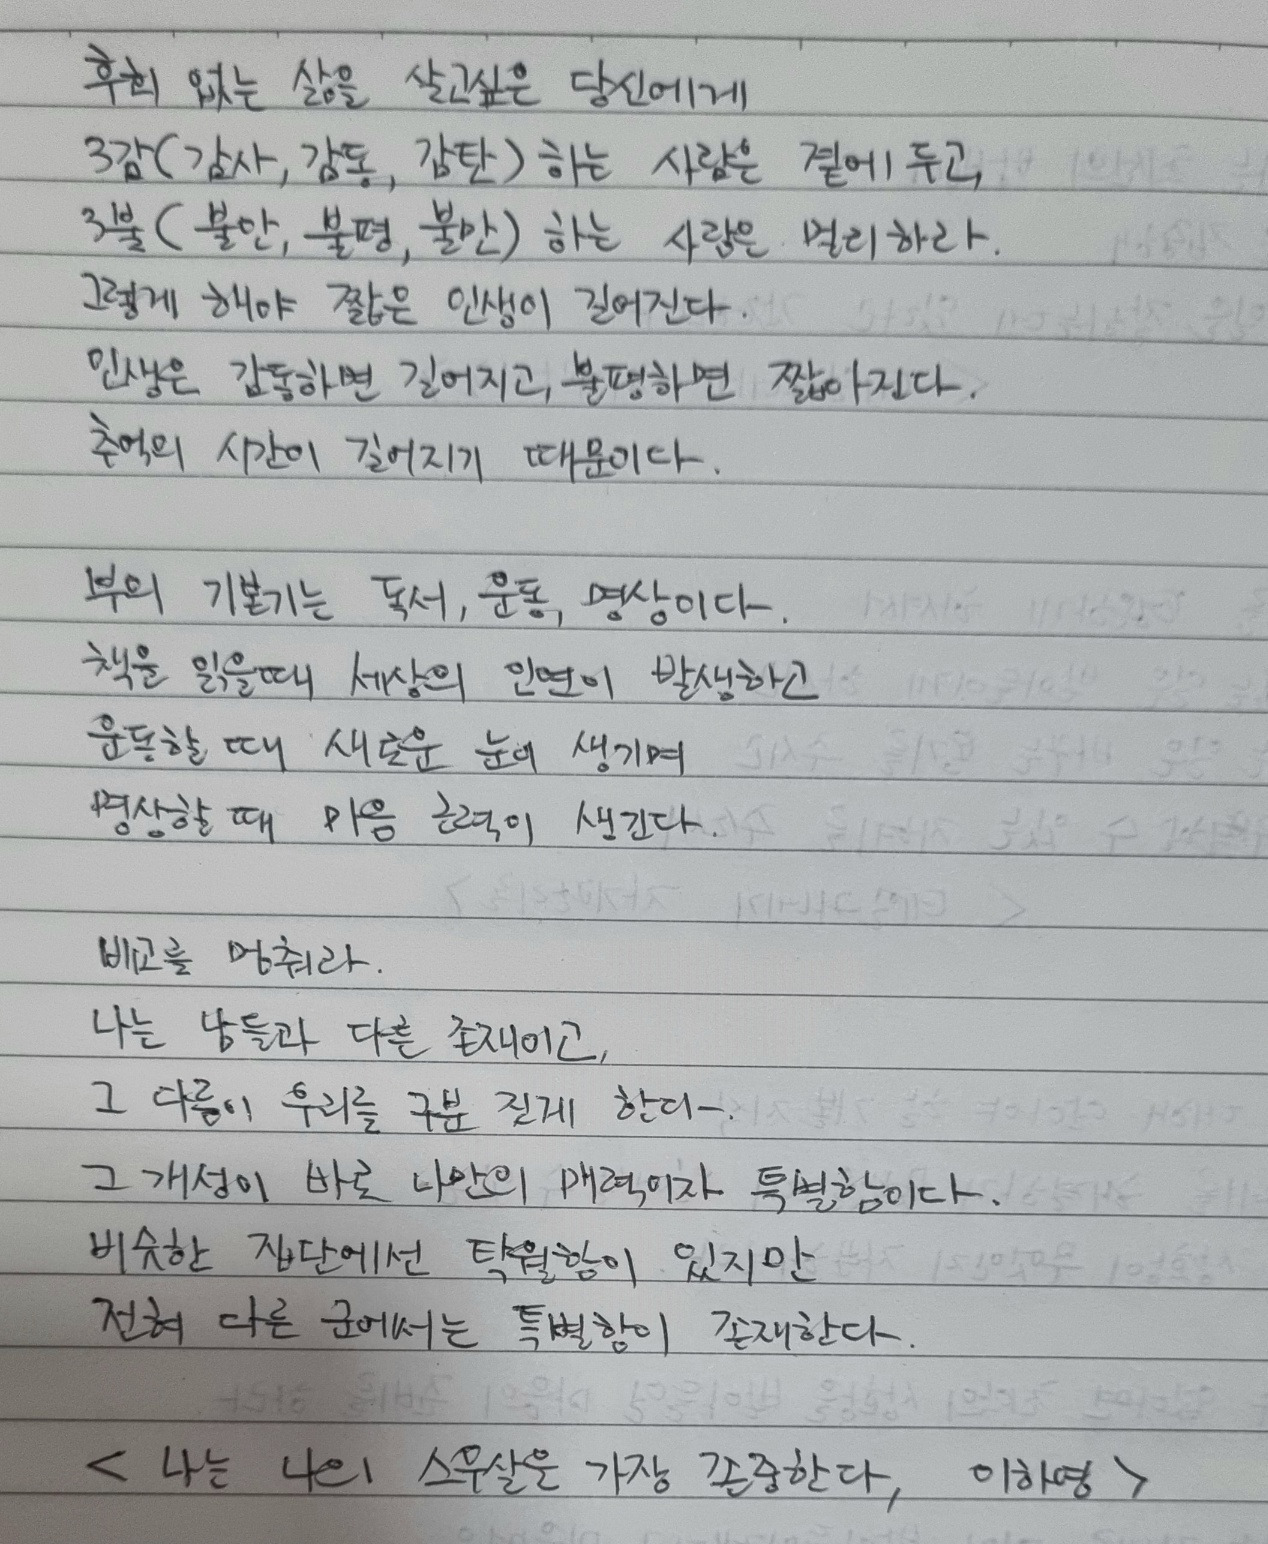 후회 없는 삶을 살고싶은 당신에게
3감(감사, 감동, 감탄) 하는 사람은 곁에 두고,
3불( 불안, 불평, 불만) 하는 사람은 멀리하라.
그렇게 해야 짧은 인생이 길어진다.
인생은 감동하면 길어지고, 불평하면 짧아진다.
추억의 시간이 길어지기 때문이다.
부의 기본기는 독서, 운동, 명상이다.
책을 읽을때 세상의 인연이 발생하고
운동할 때 새로운 눈이 생기며
명상할 때 마음 근력이 생긴다.
비교를 멈춰라.
나는 남들과 다른 존재이고,
그 다름이 우리를 구분 짓게 한다.
그 개성이 바로 나만의 매력이자 특별함이다.
비슷한 집단에선 탁월함이 있지만
전혀 다른 군에서는 특별함이 존재한다.
< 나는 나의 스무살은 가장 존중한다, 이하영 >